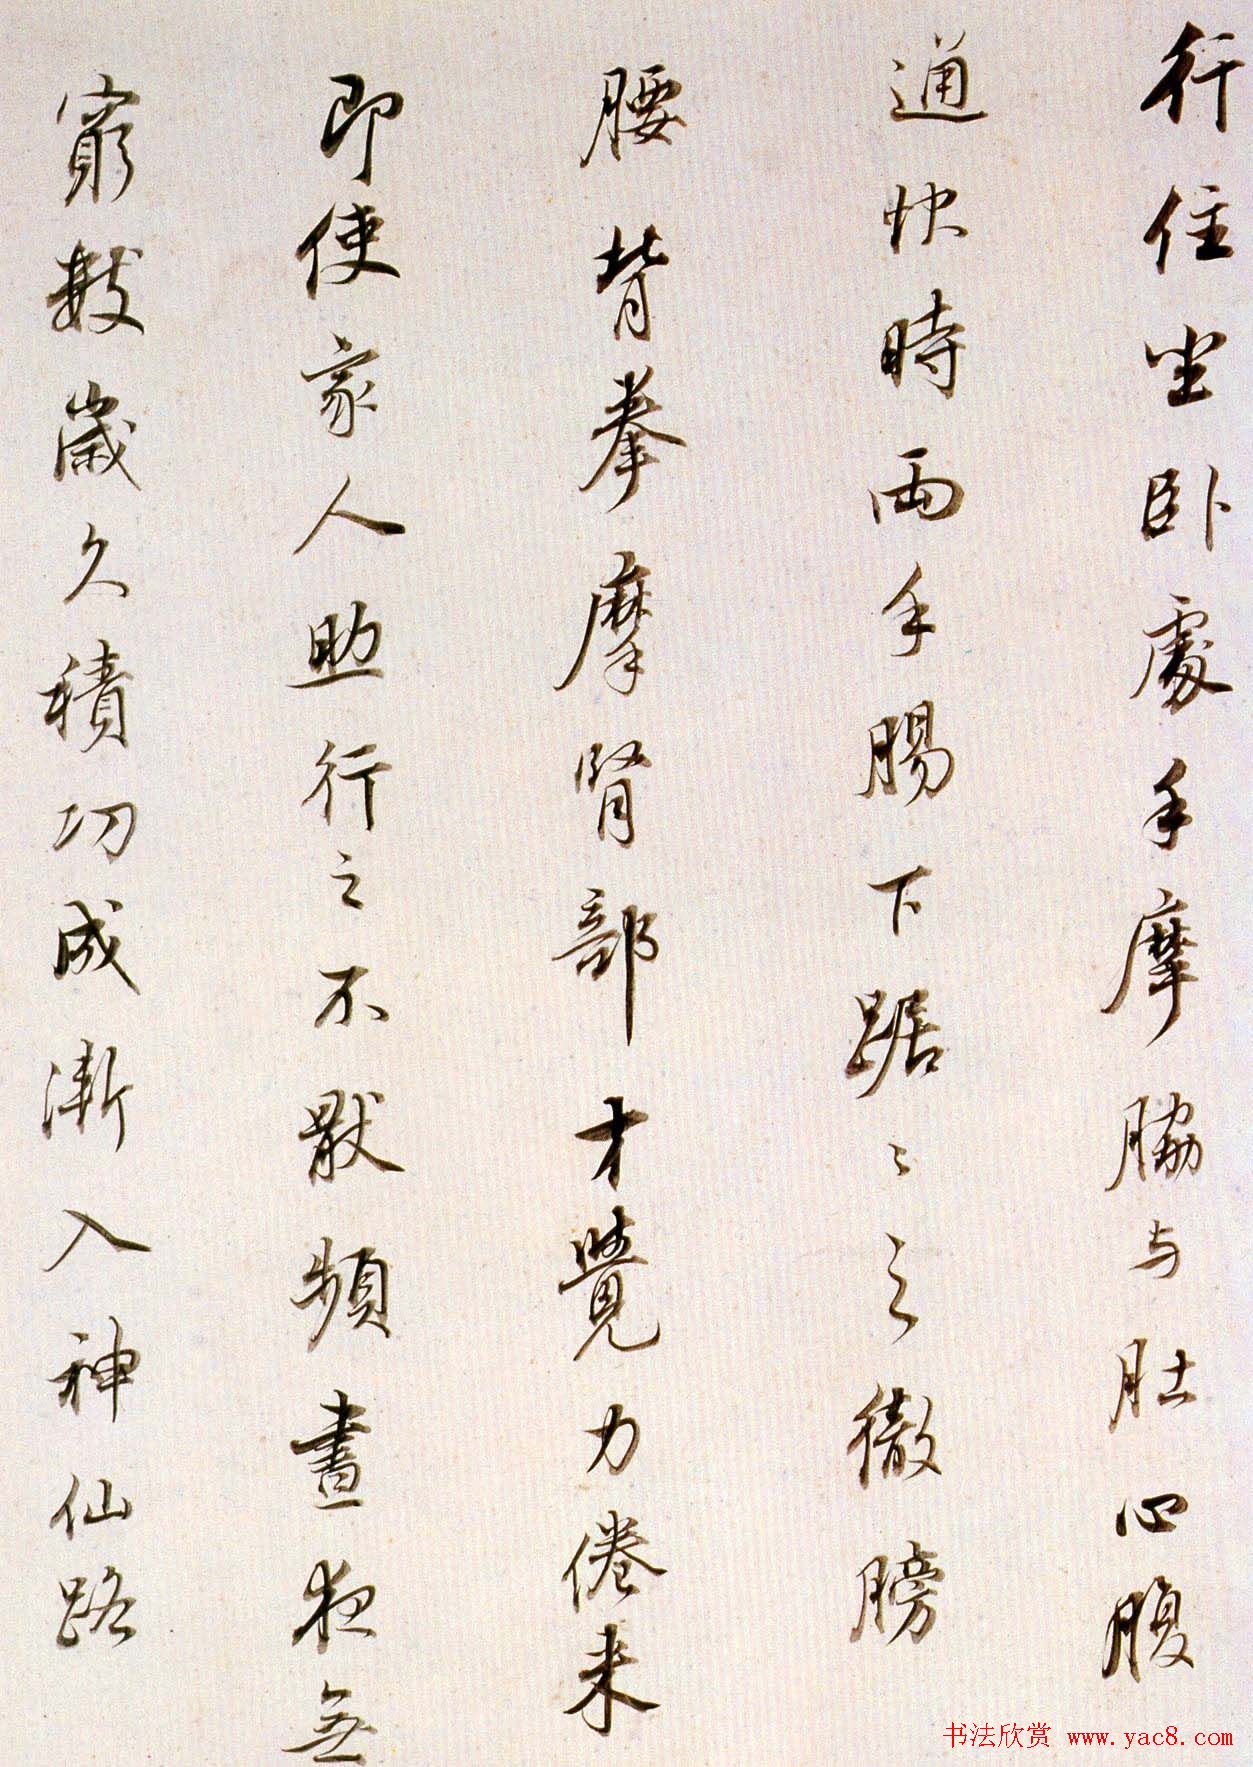 行住坐卧處手摩脇与肚心腹
通快時兩手腸下踞〻之徹膀
腰背拳摩腎部才覺力倦来
即使家人助行之不猒頻晝夜無
窮數歲久積功成漸入神仙路
书法欣赏 www.yac8.com